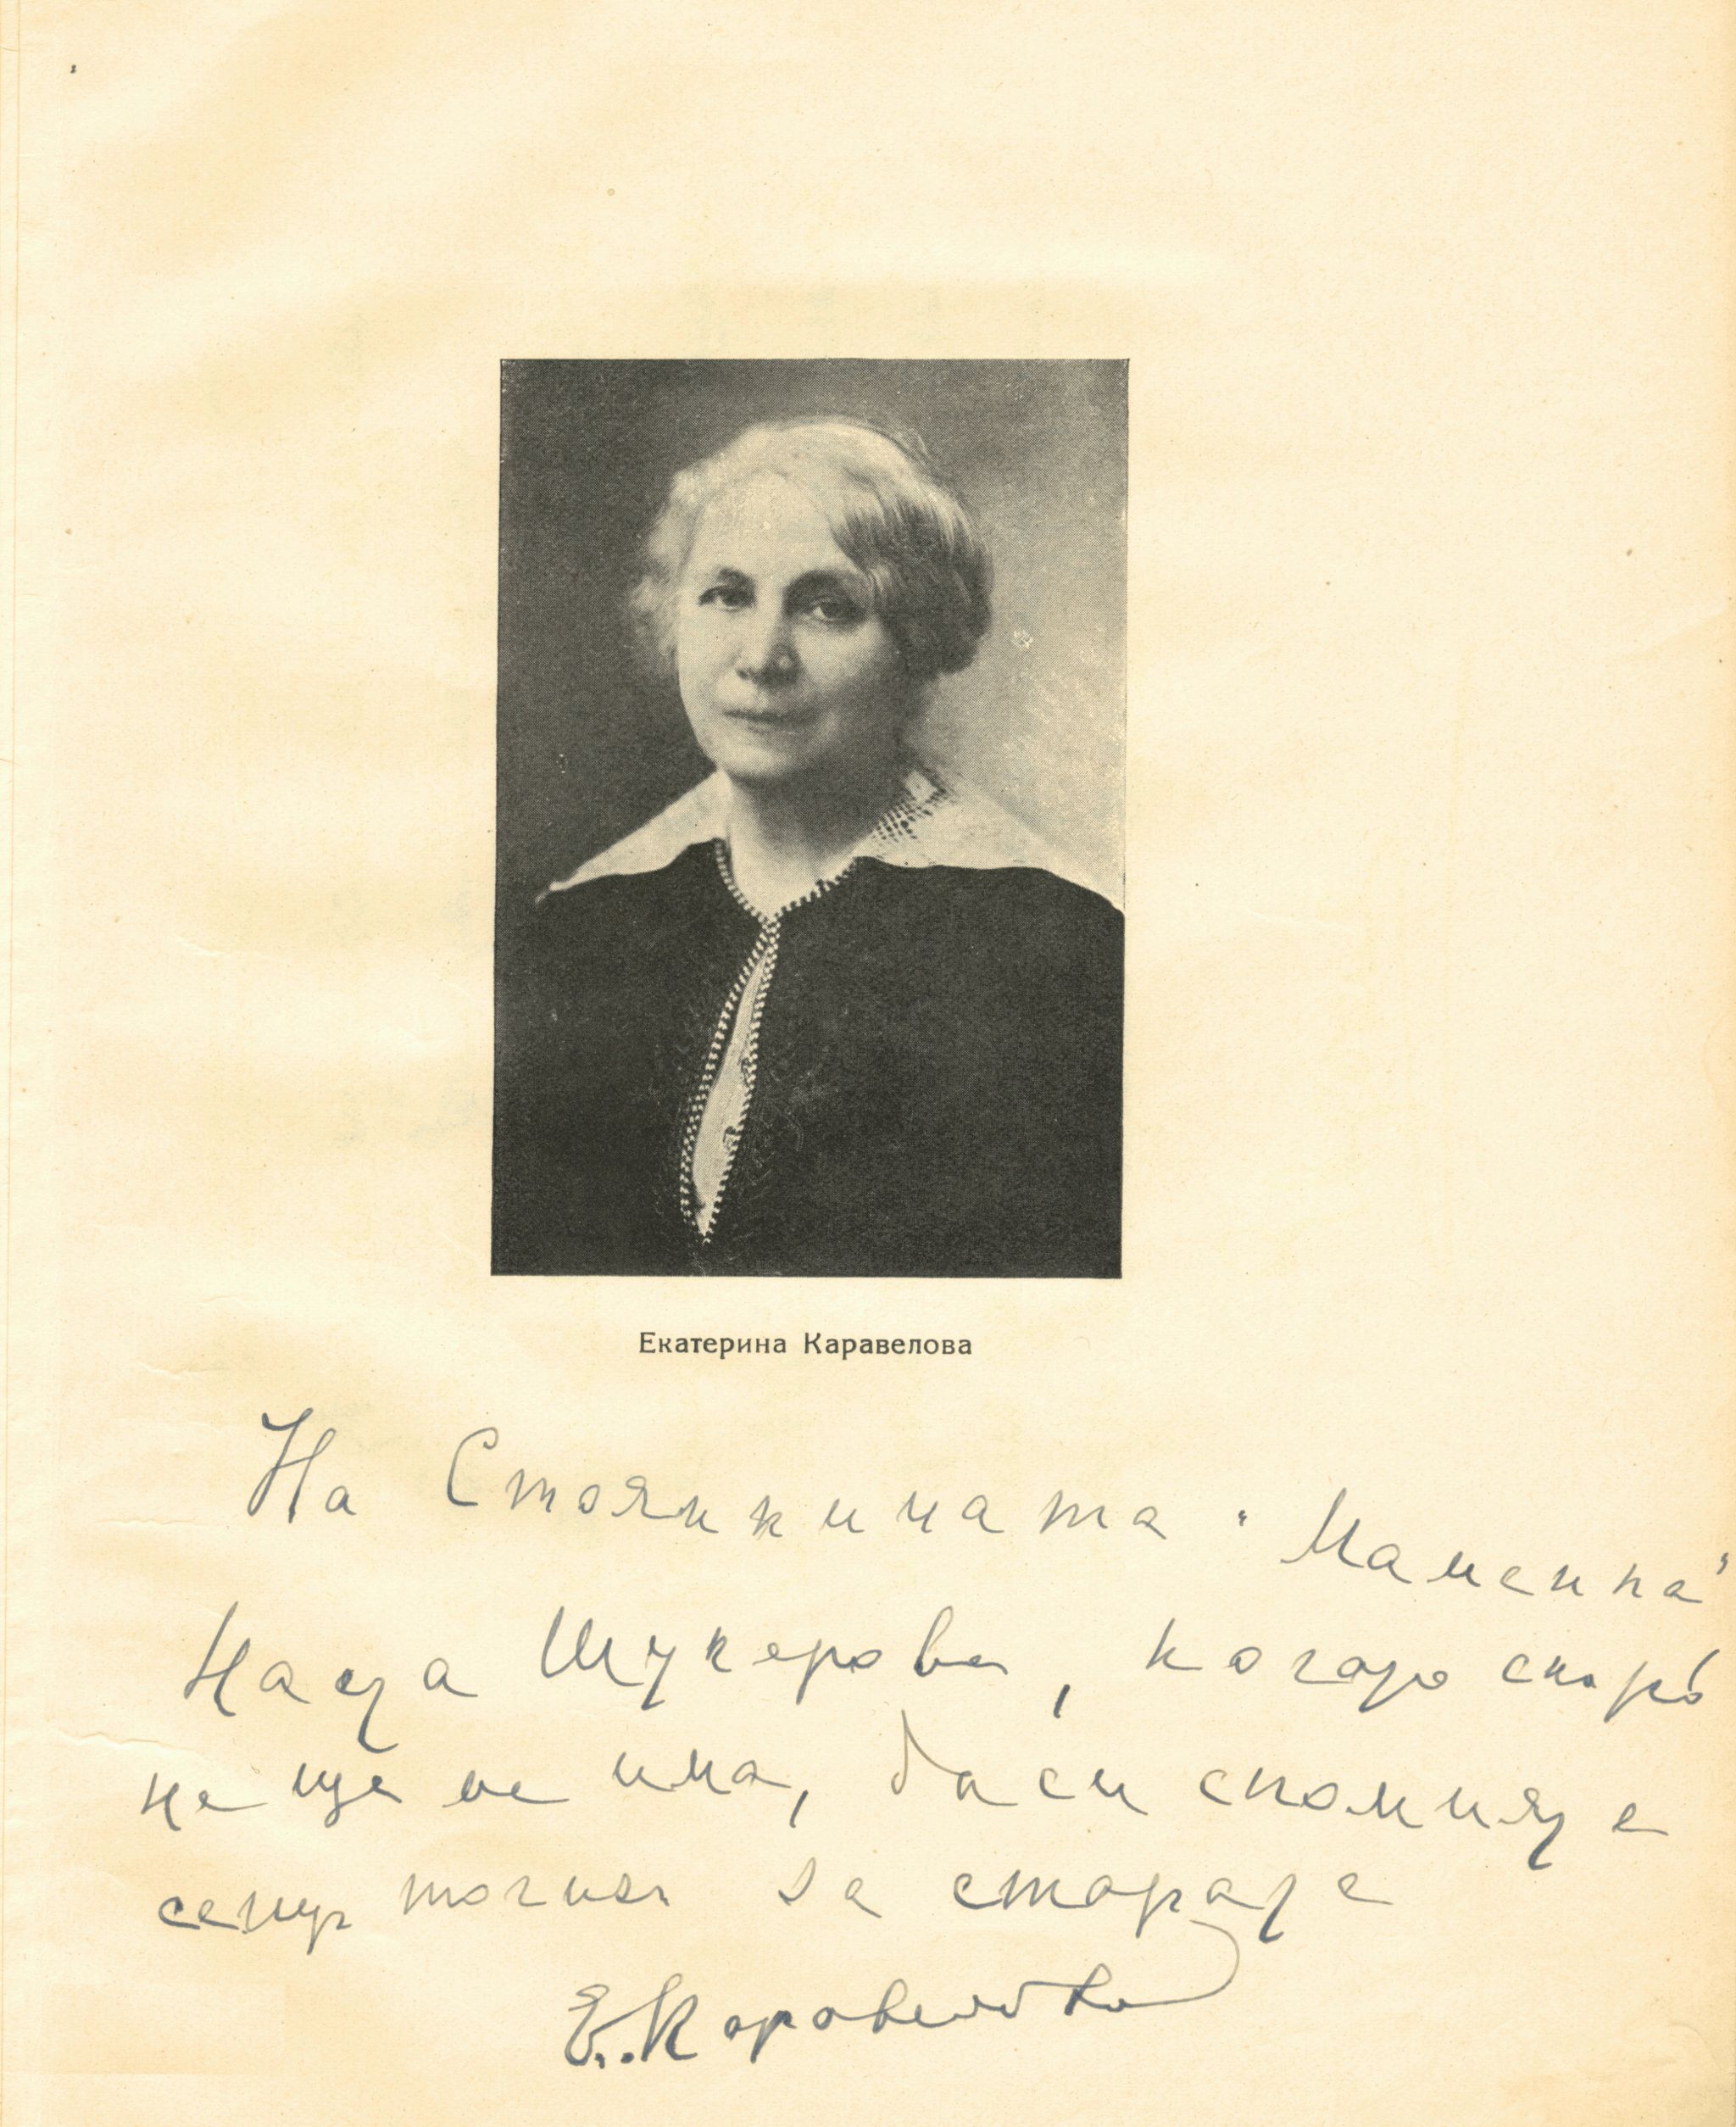 Екатерина Каравелова
На Стоянкината "Маменка"
Надя Шукерова, когато скоро
не ще ме има, да си спомняте
за старата
Е. Каравелова